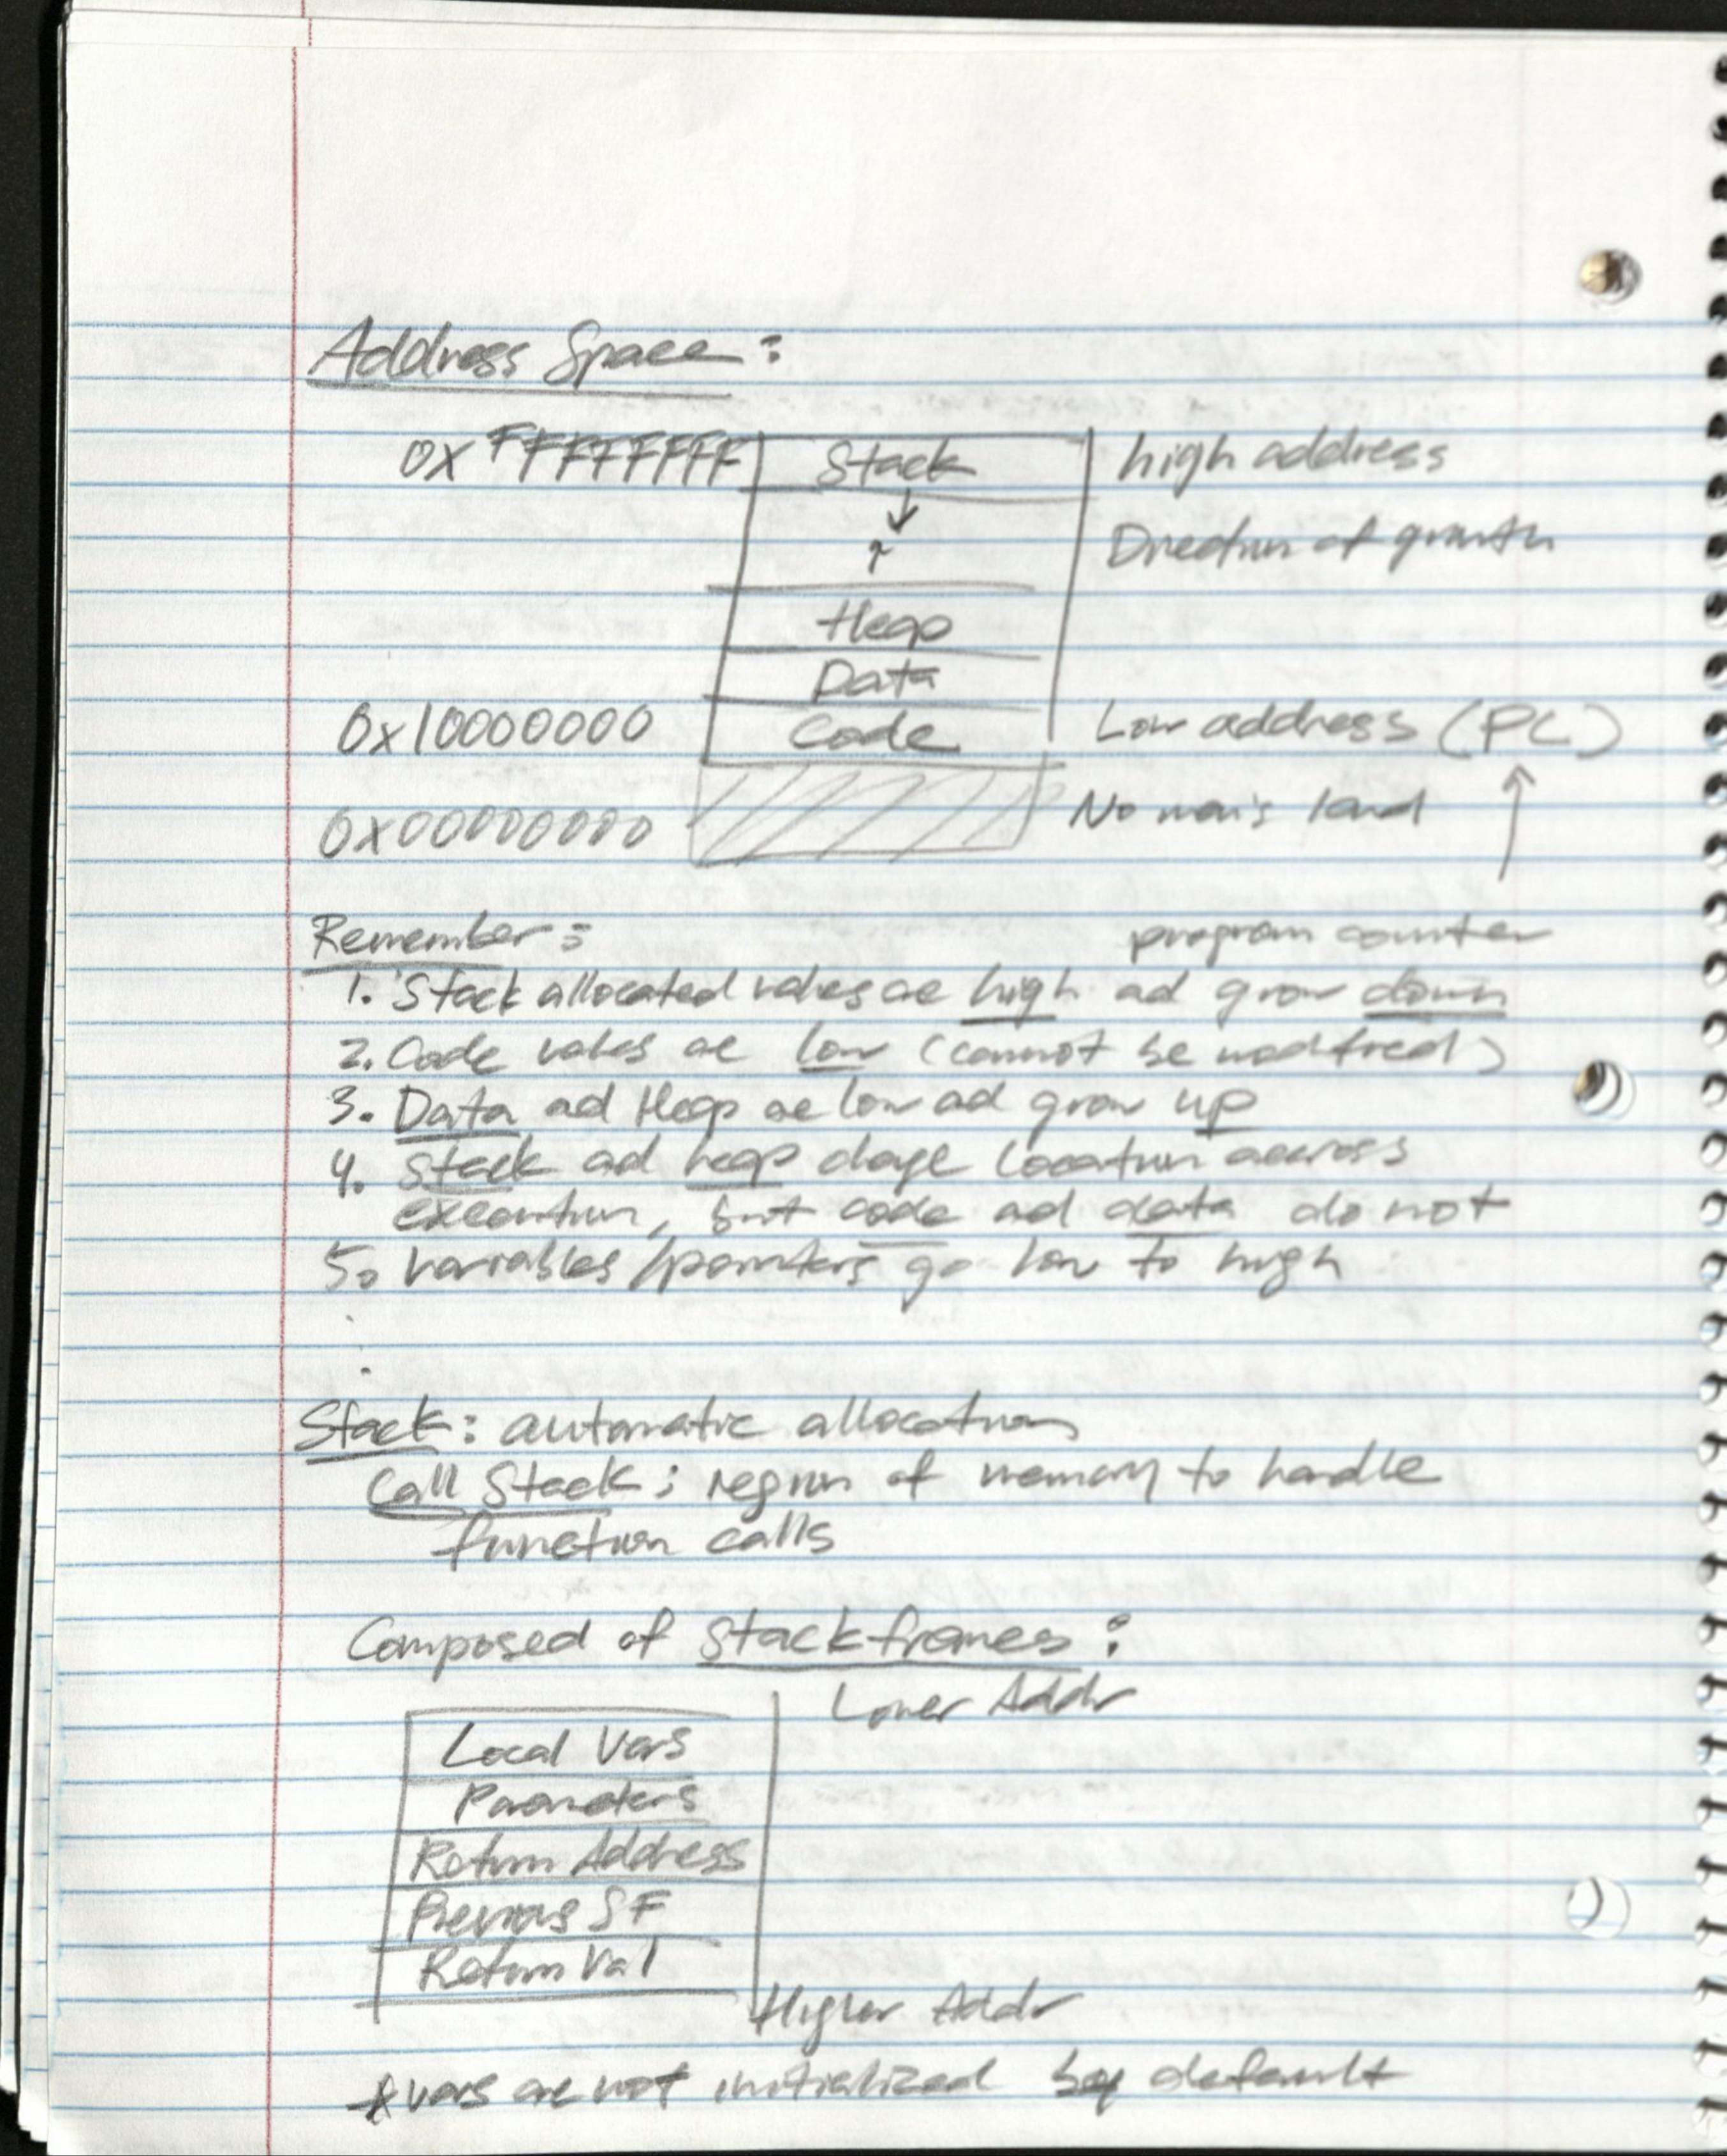 Address Space:
0xFFFFFFFF Stack high address
↓
↑ Direction of growth
Heap
Data
0x10000000 Code Low address (PC)
0x00000000 No man's land ↑
Remember: program counter
1. Stack allocated values are high ad grow down
2. Code vales ae low (cannot be modified)
3. Data ad Heap ae low ad grow up
4. Stack ad heap change location across
execution, but code ad data do not
5. Variables/pointers go low to high
.
.
Stack: automatic allocation
Call Stack: region of memory to handle
function calls
Composed of stack frames:
Lower Addr
Local Vars
Parameters
Return Address
Previous SF
Return Val
Higher Addr
*vars are not initialized by default